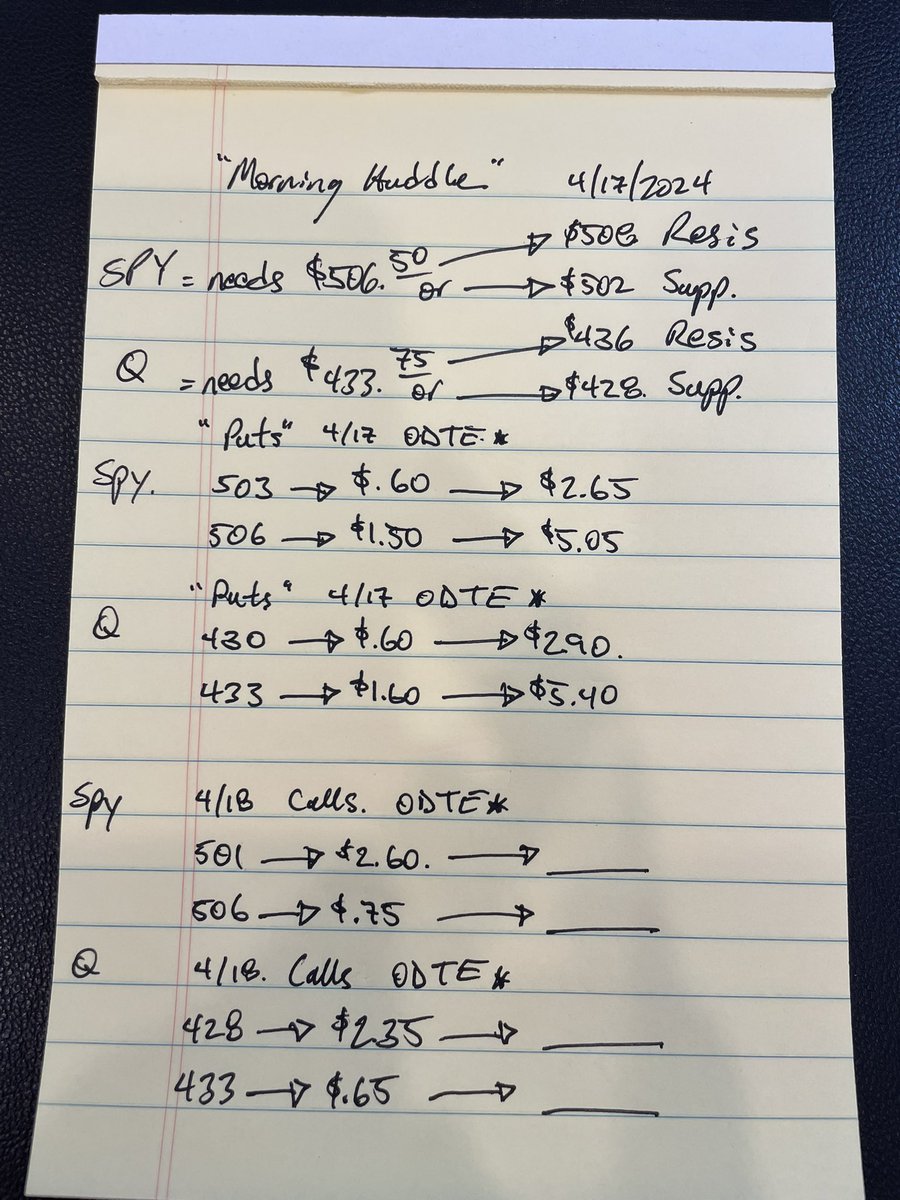 "Morning Huddle" 4/17/2024
$508 Resis
SPY = needs $506.50 or → $502 Supp.
$436 Resis
Q = needs $433.75 or → $428. Supp.
"Puts" 4/17 ODTE *
Spy. 503 → $.60 → $2.65
506 → $1.50 → $5.05
"Puts" 4/17 ODTE *
Q
430 → $.60 → $2.90.
433 → $1.60 → $5.40
Spy 4/18 Calls. ODTE *
501 → $2.60. → ____
506 → $.75 → ____
Q 4/18. Calls ODTE *
428 → $2.35 → ____
433 → $.65 → ____